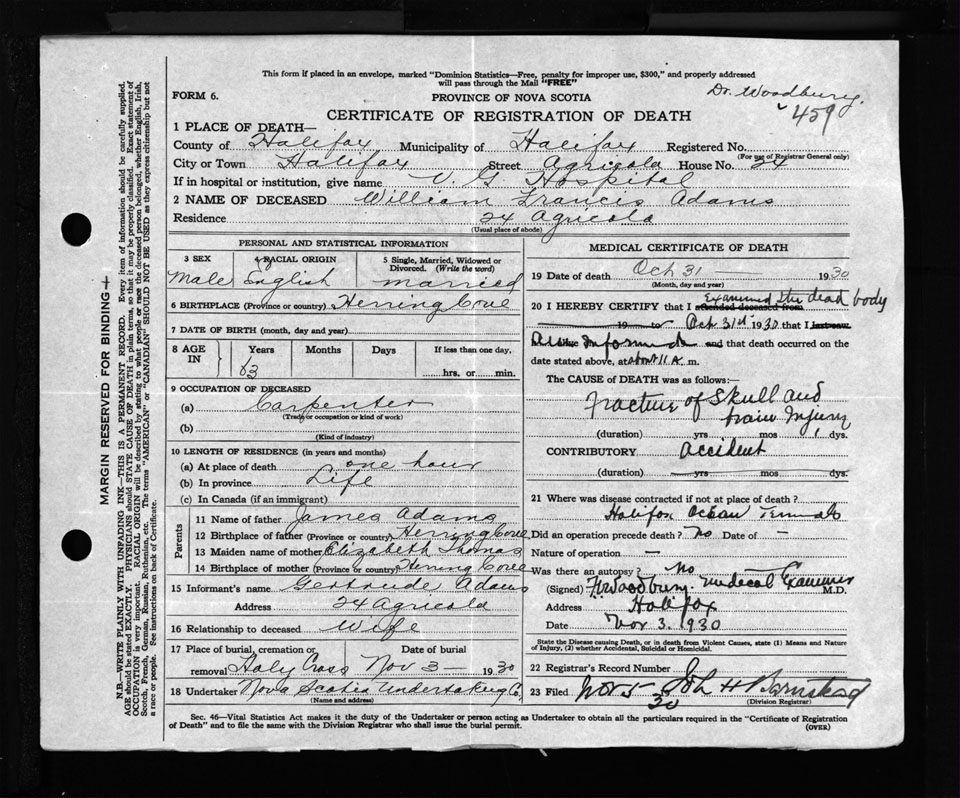 This form if placed in an envelope, marked "Dominion Statistics—Free, penalty for improper use, $300," and properly addressed
will pass through the Mail "FREE"
Dr. Woodbury.
459
FORM 6.
PROVINCE OF NOVA SCOTIA
CERTIFICATE OF REGISTRATION OF DEATH
1 PLACE OF DEATH—
County of Halifax Municipality of Halifax Registered No.
(For use of Registrar General only)
City or Town Halifax Street Agricola House No. 24
If in hospital or institution, give name V. G. Hospital
2 NAME OF DECEASED William Francis Adams
Residence 24 Agricola
(Usual place of abode)
PERSONAL AND STATISTICAL INFORMATION
3 SEX Male
4 RACIAL ORIGIN English
5 Single, Married, Widowed or Divorced. (Write the word) married
6 BIRTHPLACE (Province or country) Herring Cove
7 DATE OF BIRTH (month, day and year)
8 AGE IN Years Months Days If less than one day,
63 hrs. or min.
9 OCCUPATION OF DECEASED
(a) Carpenter
(Trade or occupation or kind of work)
(b)
(Kind of industry)
10 LENGTH OF RESIDENCE (in years and months)
(a) At place of death one hour
(b) In province Life
(c) In Canada (if an immigrant)
Parents
11 Name of father James Adams
12 Birthplace of father (Province or country) Herring Cove
13 Maiden name of mother Elizabeth Thomas
14 Birthplace of mother (Province or country) Herring Cove
15 Informant's name Gertrude Adams
Address 24 Agricola
16 Relationship to deceased Wife
17 Place of burial, cremation or removal Holy Cross Date of burial Nov 3 — 1930
18 Undertaker Nova Scotia Undertaking Co.
(Name and address)
MEDICAL CERTIFICATE OF DEATH
19 Date of death Oct 31 — 1930
(Month, day and year)
20 I HEREBY CERTIFY that I attended deceased from Examined the dead body
19 to Oct 31st 1930 that I last saw
alive Informed and that death occurred on the
date stated above, at about 11 A. m.
The CAUSE OF DEATH was as follows:
Fracture of Skull and
brain Injury
(duration) yrs mos 1, dys.
CONTRIBUTORY Accident
(duration) yrs mos dys.
21 Where was disease contracted if not at place of death?
Halifax Ocean Terminals
Did an operation precede death? No Date of —
Nature of operation —
Was there an autopsy? No —
(Signed) Woodbury. Medical Examiner M.D.
Address Halifax
Date Nov 3. 1930
State the Disease causing Death, or in death from Violent Causes, state (1) Means and Nature
of Injury, (2) whether Accidental, Suicidal or Homicidal.
22 Registrar's Record Number
23 Filed Nov 5 30 John H Barnstead
(Division Registrar)
Sec. 46—Vital Statistics Act makes it the duty of the Undertaker or person acting as Undertaker to obtain all the particulars required in the "Certificate of Registration
of Death" and to file the same with the Division Registrar who shall issue the burial permit.
(OVER)
MARGIN RESERVED FOR BINDING
N.B.—WRITE PLAINLY WITH UNFADING INK—THIS IS A PERMANENT RECORD. Every item of information should be carefully supplied.
AGE should be stated EXACTLY. PHYSICIANS should STATE CAUSE OF DEATH in plain terms, so that it may be properly classified. Exact statement of
OCCUPATION is very important. RACIAL ORIGIN will be described by stating to what people or race the deceased person belonged, whether English, Irish,
Scotch, French, German, Russian, Ruthenian, etc. The terms "AMERICAN" or "CANADIAN" SHOULD NOT BE USED as they express citizenship but not
a race or people. See instructions on back of Certificate.